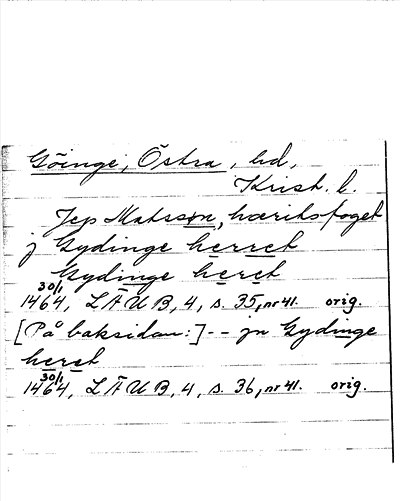 Göinge, Östra, hd,
Krist. l.
Jep Matssøn, hæritsfoget
j Gydinge herret
Gydinge heret
30/1
1464, LÄUB, 4, s. 35, nr 41. orig.
[På baksidan:] -- jn Gydinge
heret
30/1
1464, LÄUB, 4, s. 36, nr 41. orig.